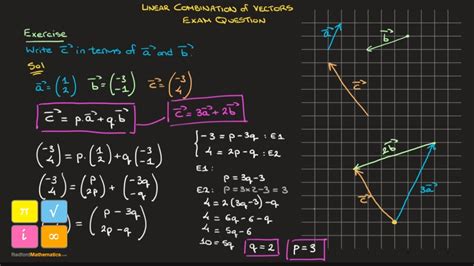 LINEAR COMBINATION of VECTORS
EXAM QUESTION
Exercise
Write c⃗ in terms of a⃗ and b⃗.
Sol
a⃗ = (1 2) b⃗ = (-3 -1) c⃗ = (-3 4)
c⃗ = p.a⃗ + q.b⃗
c⃗ = 3a⃗ + 2b⃗
(-3 4) = p.(1 2) + q(-3 -1)
(-3 4) = (p 2p) + (-3q -q)
(p - 3q 2p - q)
{ -3 = p - 3q : E1
4 = 2p - q : E2
E1:
p = 3q - 3
E2: p = 3×2 - 3 = 3
4 = 2(3q - 3) - q
4 = 6q - 6 - q
4 = 5q - 6
10 = 5q
q = 2
p = 3
π √
i ∞
RadfordMathematics.com
a⃗
b⃗
c⃗
2b⃗
c⃗
3a⃗